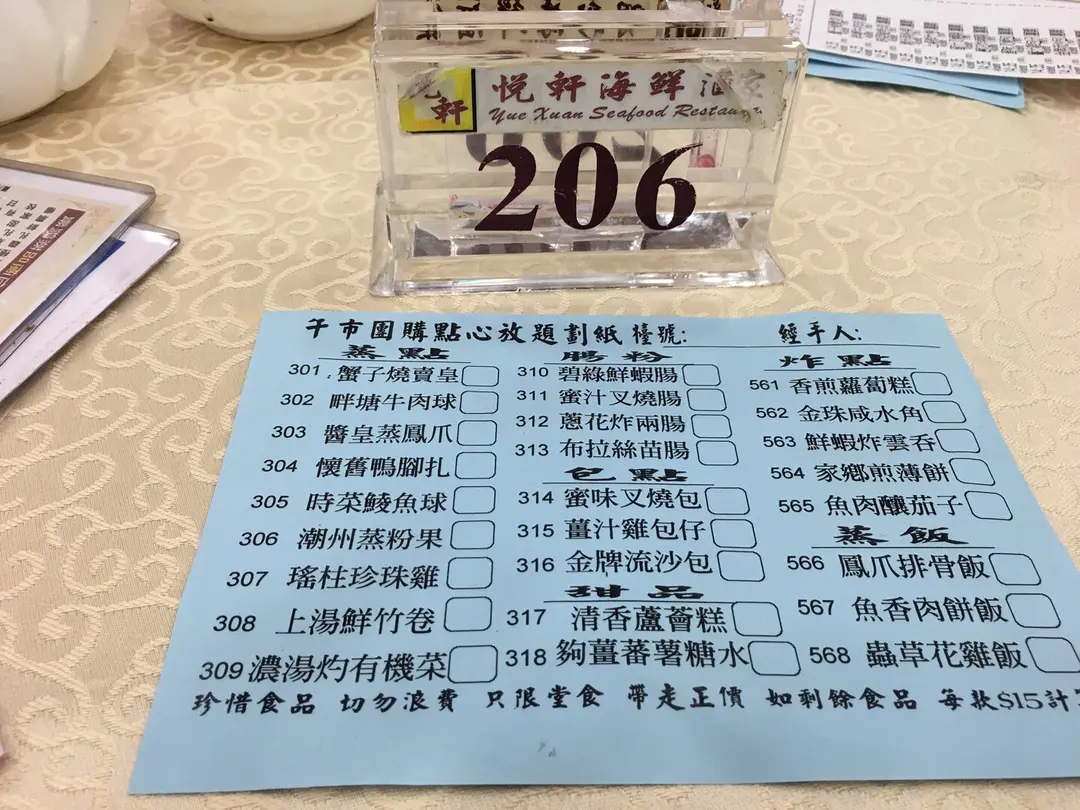 悅軒海鮮酒家
Yue Xuan Seafood Restaura
206
午市團購點心放題劃紙 檯號: 經手人:
蒸點
301 蟹子燒賣皇
302 畔塘牛肉球
303 醬皇蒸鳳爪
304 懷舊鴨腳扎
305 時菜鯪魚球
306 潮州蒸粉果
307 瑤柱珍珠雞
308 上湯鮮竹卷
309 濃湯灼有機菜
腸粉
310 碧綠鮮蝦腸
311 蜜汁叉燒腸
312 蔥花炸兩腸
313 布拉絲苗腸
包點
314 蜜味叉燒包
315 薑汁雞包仔
316 金牌流沙包
甜品
317 清香蘆薈糕
318 夠薑蕃薯糖水
炸點
561 香煎蘿蔔糕
562 金珠咸水角
563 鮮蝦炸雲吞
564 家鄉煎薄餅
565 魚肉釀茄子
蒸飯
566 鳳爪排骨飯
567 魚香肉餅飯
568 蟲草花雞飯
珍惜食品 切勿浪費 只限堂食 帶走正價 如剩餘食品 每款$15計